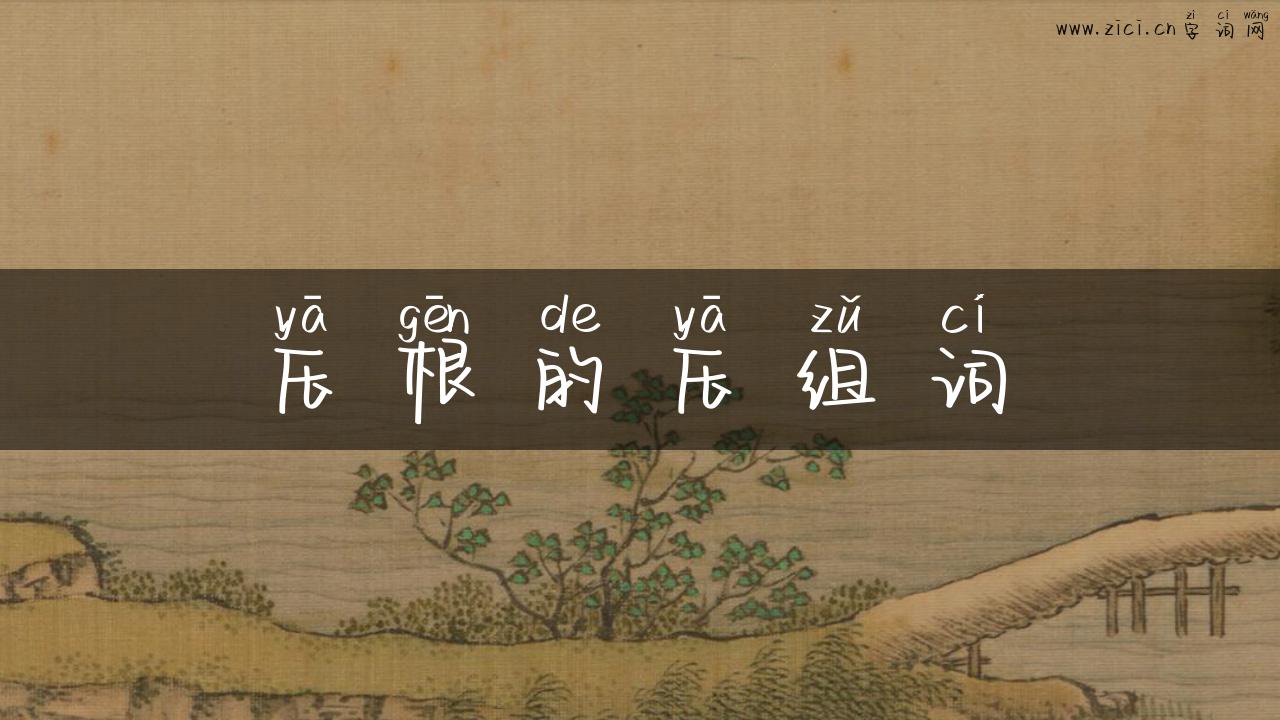 www.zici.cn 字词网
zì cí wǎng
yā gēn de yā zǔ cí
压根的压组词